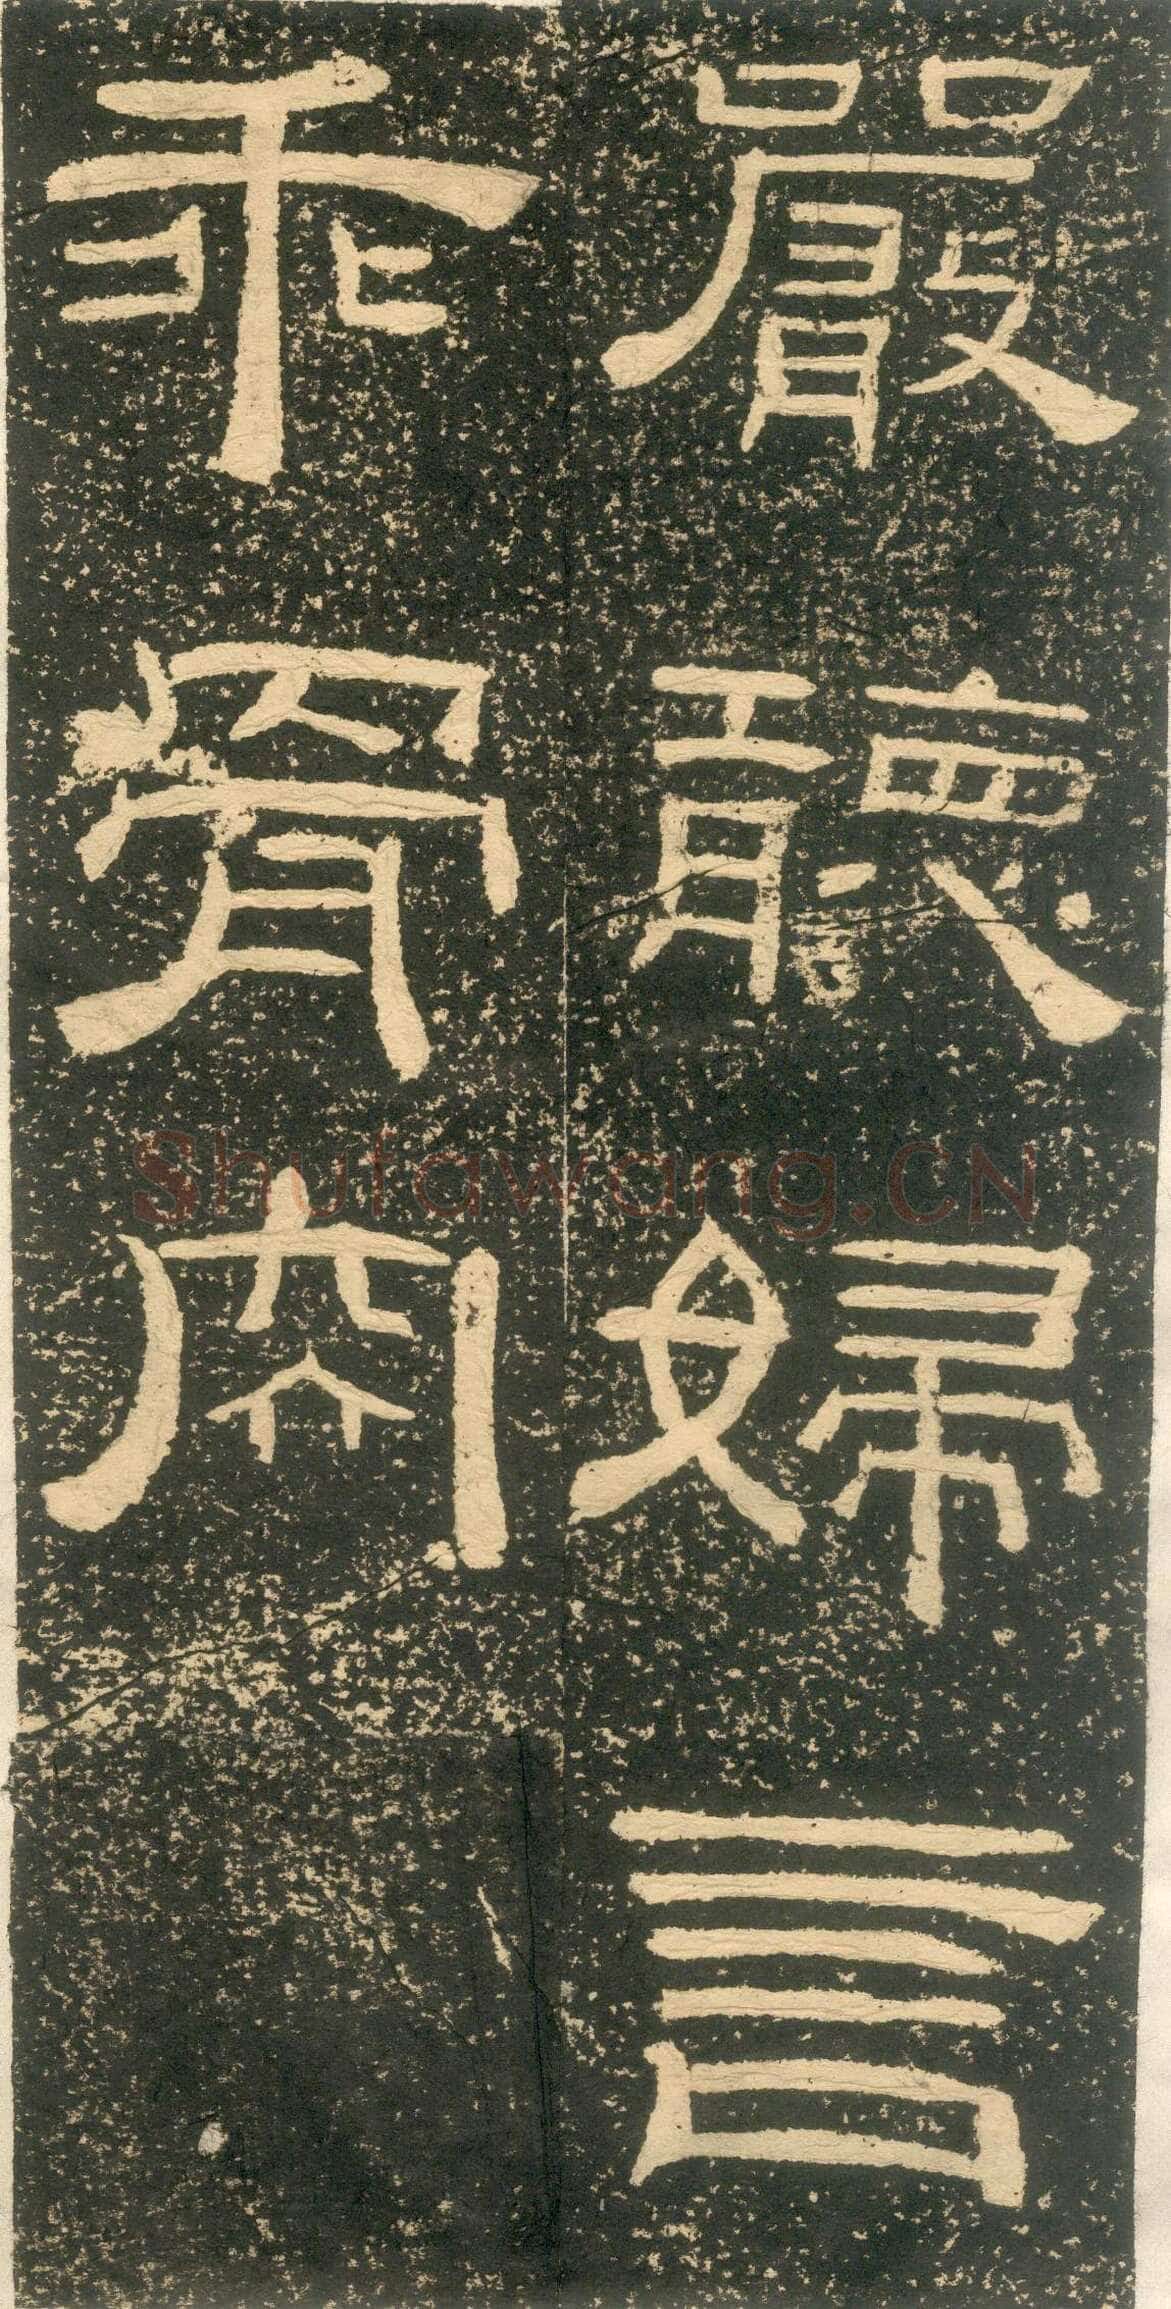 嚴聽婦言
乖骨肉
Shufawang.CN